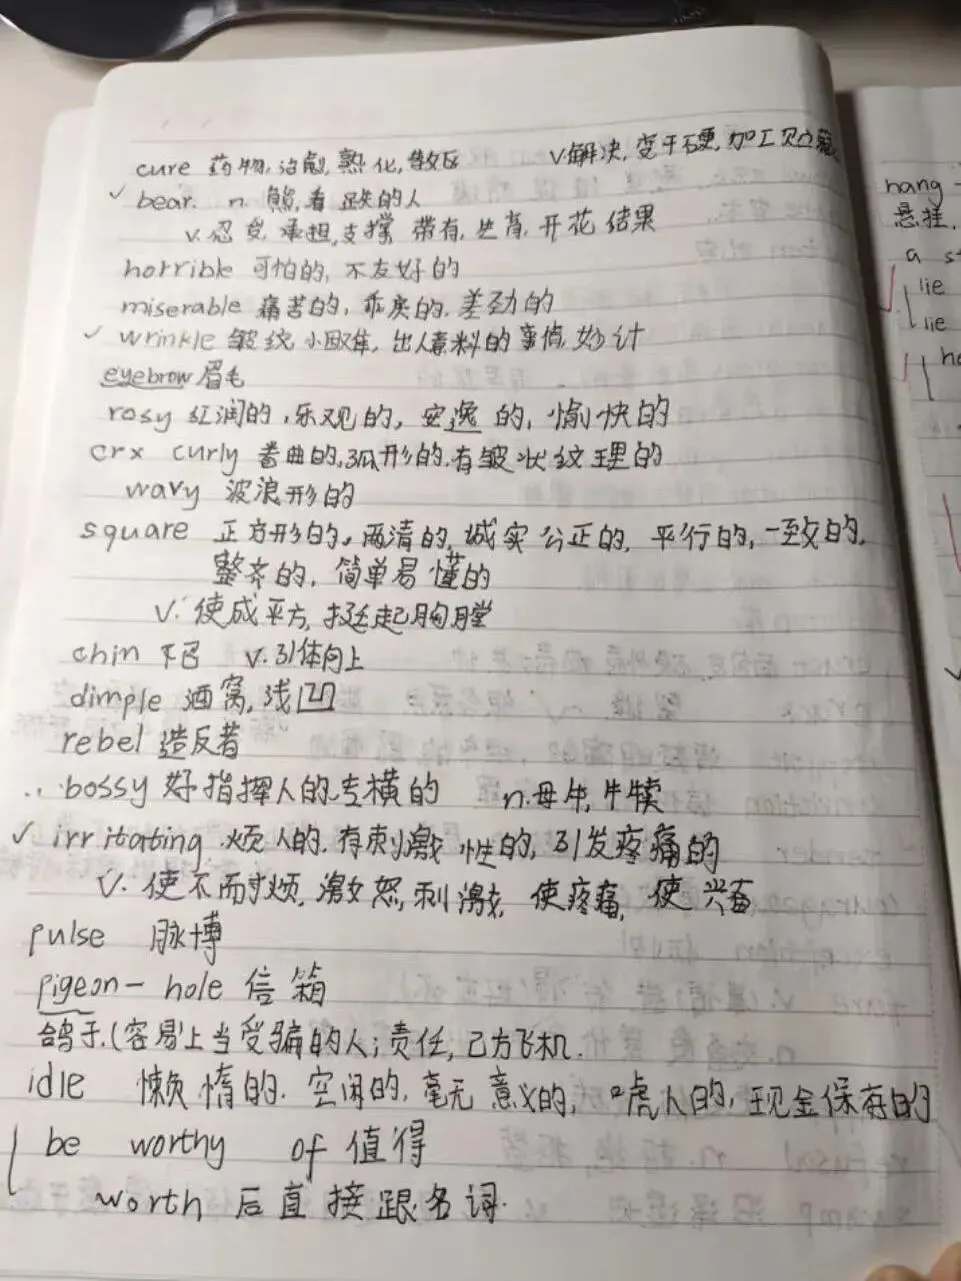 cure 药物,治愈,熟化,教区 v.解决,变干硬,加工贮藏
✓ bear. n. 熊,看跌的人
v.忍受 承担,支撑 带有,生育,开花 结果
horrible 可怕的,不友好的
miserable 痛苦的,乖戾的,差劲的
✓ wrinkle 皱纹 小困难,出人意料的事情,妙计
eyebrow 眉毛
rosy 红润的,乐观的,安逸的,愉快的
crx curly 卷曲的,弧形的,有皱状纹理的
wavy 波浪形的
square 正方形的,两清的,诚实公正的,平行的,一致的,
整齐的,简单易懂的
v.使成平方,挺起胸膛
chin 下巴 v.引体向上
dimple 酒窝,浅凹
rebel 造反者
bossy 好指挥人的,专横的 n.母牛,牛犊
✓ irritating 烦人的,有刺激性的,引发疼痛的
v.使不耐烦,激怒,刺激,使疼痛,使兴奋
pulse 脉博
pigeon-hole 信箱
鸽子,(容易)上当受骗的人;责任,己方飞机.
idle 懒惰的.空闲的,毫无意义的,唬人的,现金保存的
be worthy of 值得
worth 后直接跟名词.
hang -
悬挂,
a s
lie
lie